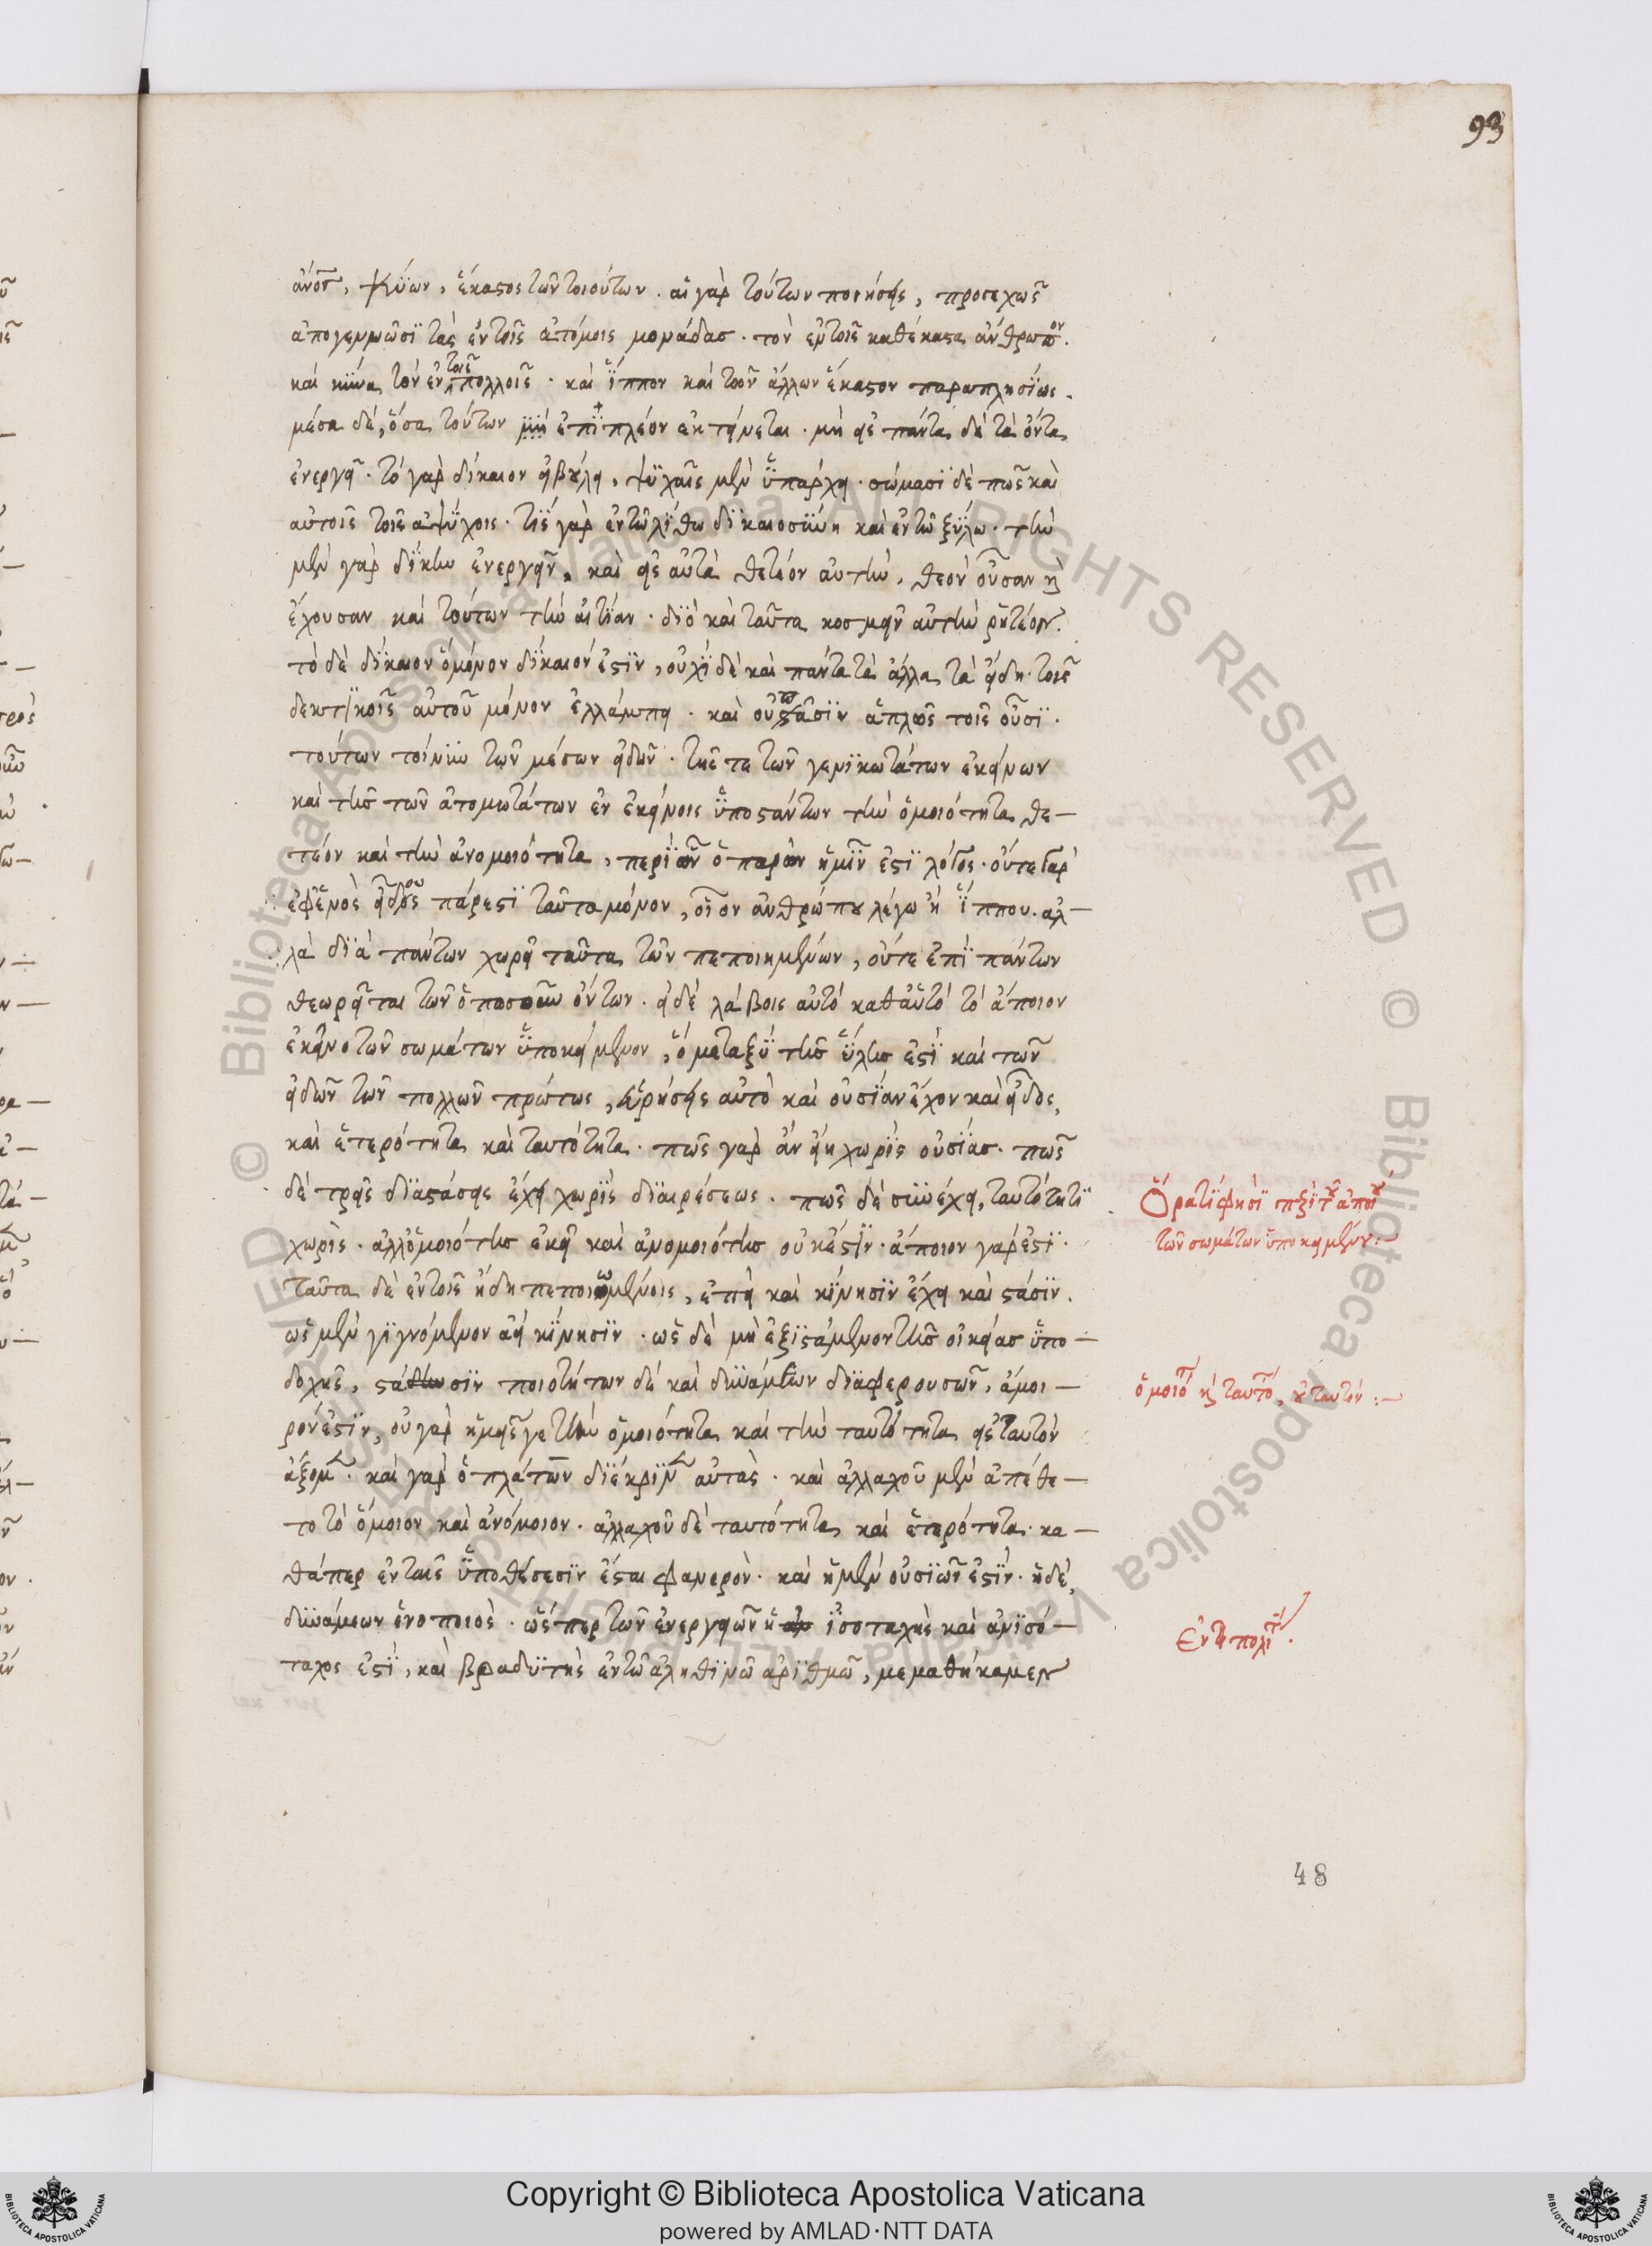 93
ἄνος, κύων, ἕκαστος τῶν τοιούτων. αἱ γὰρ τούτων ποιήσεις, προσεχῶς
ἀπογεννῶσι τὰς ἐν τοῖς ἀτόμοις μονάδας. τὸν ἐν τοῖς καθέκαστα ἄνθρωπον.
καὶ κύνα τὸν ἐν τοῖς πολλοῖς. καὶ ἵππον καὶ τῶν ἄλλων ἕκαστον παραπλησίως.
μέσα δὲ, ὅσα τούτων μὴ ἐπὶ πλέον ἐκτείνεται. μὴ εἰς πάντα δὲ τὰ ὄντα
ἐνεργεῖ. τὸ γὰρ δίκαιον εἰ βούλει, ψυχαῖς μὲν ὑπάρχει. σώμασι δὲ πῶς καὶ
αὐτοῖς τοῖς ἀψύχοις. τίς γὰρ ἐν τῷ λίθω δικαιοσύνη καὶ ἐν τῷ ξύλω. τὴν
μὲν γὰρ δίκην ἐνεργεῖν, καὶ εἰς αὐτὰ θετέον αὐτὴν, θεὸν οὖσαν καὶ
ἔχουσαν καὶ τούτων τὴν αἰτίαν. διὸ καὶ ταῦτα κοσμεῖν αὐτὴν ῥητέον.
τὸ δὲ δίκαιον ὃ μόνον δίκαιόν ἐστιν, οὐχὶ δὲ καὶ πάντα τὰ ἄλλα τὰ εἴδη. τοῖς
δεκτικοῖς αὐτοῦ μόνον ἐλλάμπει. καὶ οὐ πᾶσιν ἁπλῶς τοῖς οὖσι.
τούτων τοίνυν τῶν μέσων εἰδῶν. τῆς τε τῶν γενικωτάτων ἐκείνων
καὶ τῆς τῶν ἀτομωτάτων ἐν ἐκείνοις ὑποστάντων τὴν ὁμοιότητα θε—
τέον καὶ τὴν ἀνομοιότητα, περὶ ὧν ὁ παρὼν ἡμῖν ἐστὶ λόγος. οὔτε γὰρ
ἐφενὸς εἴδους πάρεστι ταῦτα μόνον, οἷον ἀνθρώπου λέγω ἢ ἵππου. ἀλ—
λὰ διὰ πάντων χωρεῖ ταῦτα τῶν πεποιημένων, οὔτε ἐπὶ πάντων
θεωρεῖται τῶν ὁπωσοῦν ὄντων. εἰ δὲ λάβοις αὐτὸ καθαὑτὸ τὸ ἄποιον
ἐκεῖνο τῶν σωμάτων ὑποκείμενον, ὃ μεταξὺ τῆς ὕλης ἐστὶ καὶ τῶν
εἰδῶν τῶν πολλῶν πρώτως, εὑρήσεις αὐτὸ καὶ οὐσίαν ἔχον καὶ εἶδος,
καὶ ἑτερότητα καὶ ταυτότητα. πῶς γὰρ ἂν εἴη χωρὶς οὐσίας. πῶς
δὲ τρεῖς διαστάσεις ἔχει χωρὶς διαιρέσεως. πῶς δὲ συνέχει, ταυτότητι
χωρὶς. ἀλλ' ὁμοιότης ἐκεῖ καὶ ἀνομοιότης οὐκ ἔστιν. ἄποιον γάρ ἐστι.
ταῦτα δὲ ἐν τοῖς ἤδη πεποιωμένοις, ἐπεὶ καὶ κίνησιν ἔχει καὶ στάσιν.
ὡς μὲν γιγνόμενον ἀεὶ κίνησιν. ὡς δὲ μὴ ἐξιστάμενον τῆς οἰκείας ὑπο—
δοχῆς, στάσιν ποιοτήτων δὲ καὶ δυνάμεων διαφερουσῶν, ἄμοι—
ρόν ἐστιν, οὐ γὰρ ἡμεῖς γε τὴν ὁμοιότητα καὶ τὴν ταυτότητα εἰς ταυτὸν
ἄξομεν. καὶ γὰρ ὁ πλάτων διέκρινεν αὐτὰς. καὶ ἀλλαχοῦ μὲν ἀπέθε—
το τὸ ὅμοιον καὶ ἀνόμοιον. ἀλλαχοῦ δὲ ταυτότητα καὶ ἑτερότητα. κα—
θάπερ ἐν ταῖς ὑποθέσεσιν ἔσται φανερὸν. καὶ ἡ μὲν οὐσιῶν ἐστὶν. ἡ δὲ,
δυνάμεων ἑνοποιὸς. ὥσπερ τῶν ἐνεργειῶν ἡ ἰσοταχὴς καὶ ἀνισό—
ταχος ἐστὶ, καὶ βραδυτὴς ἐν τῷ ἀληθινῷ ἀριθμῷ, μεμαθήκαμεν
Ὅρα τί φησὶ περὶ τοῦ ἀποίου
τῶν σωμάτων ὑποκειμένου:—
ὁμοιότης καὶ ταυτότης, οὐ ταυτὸν:—
Ἐν τῇ πολιτεία.
48